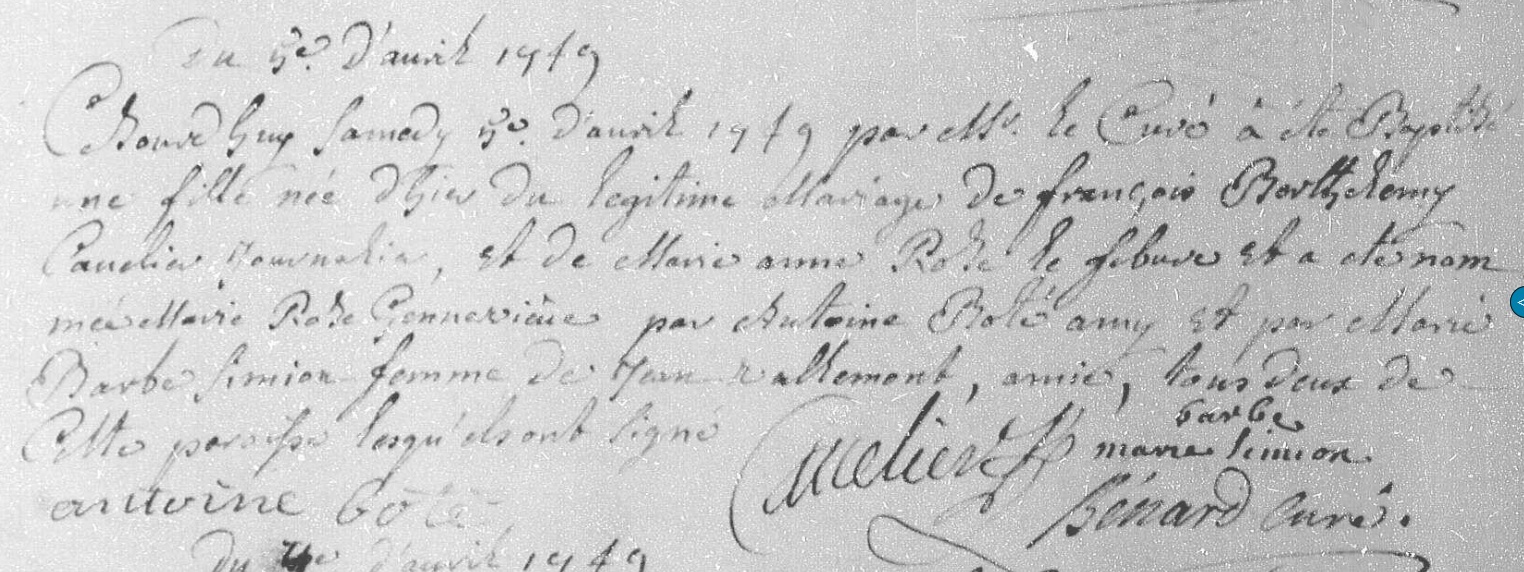 Du 5e. d'avril 1749
Cejourdhuy samedy 5e. d'avril 1749 par Mr. le Curé à été Baptisé
une fille née d'hier du legitime Mariage de françois Barthelemy
Cauelier Journalier, et de Marie anne Rose le febure et a eté nom
mée Marie Rose Génneviéve par Antoine Boté amy et par Marie
Barbe Simion femme de Jean allemont, amie, tous deux de
Cette paroisse lesquels ont signé
barbe
Cuvelier marie simion
antoine bote Bénard Curé.
du d'avril 1749